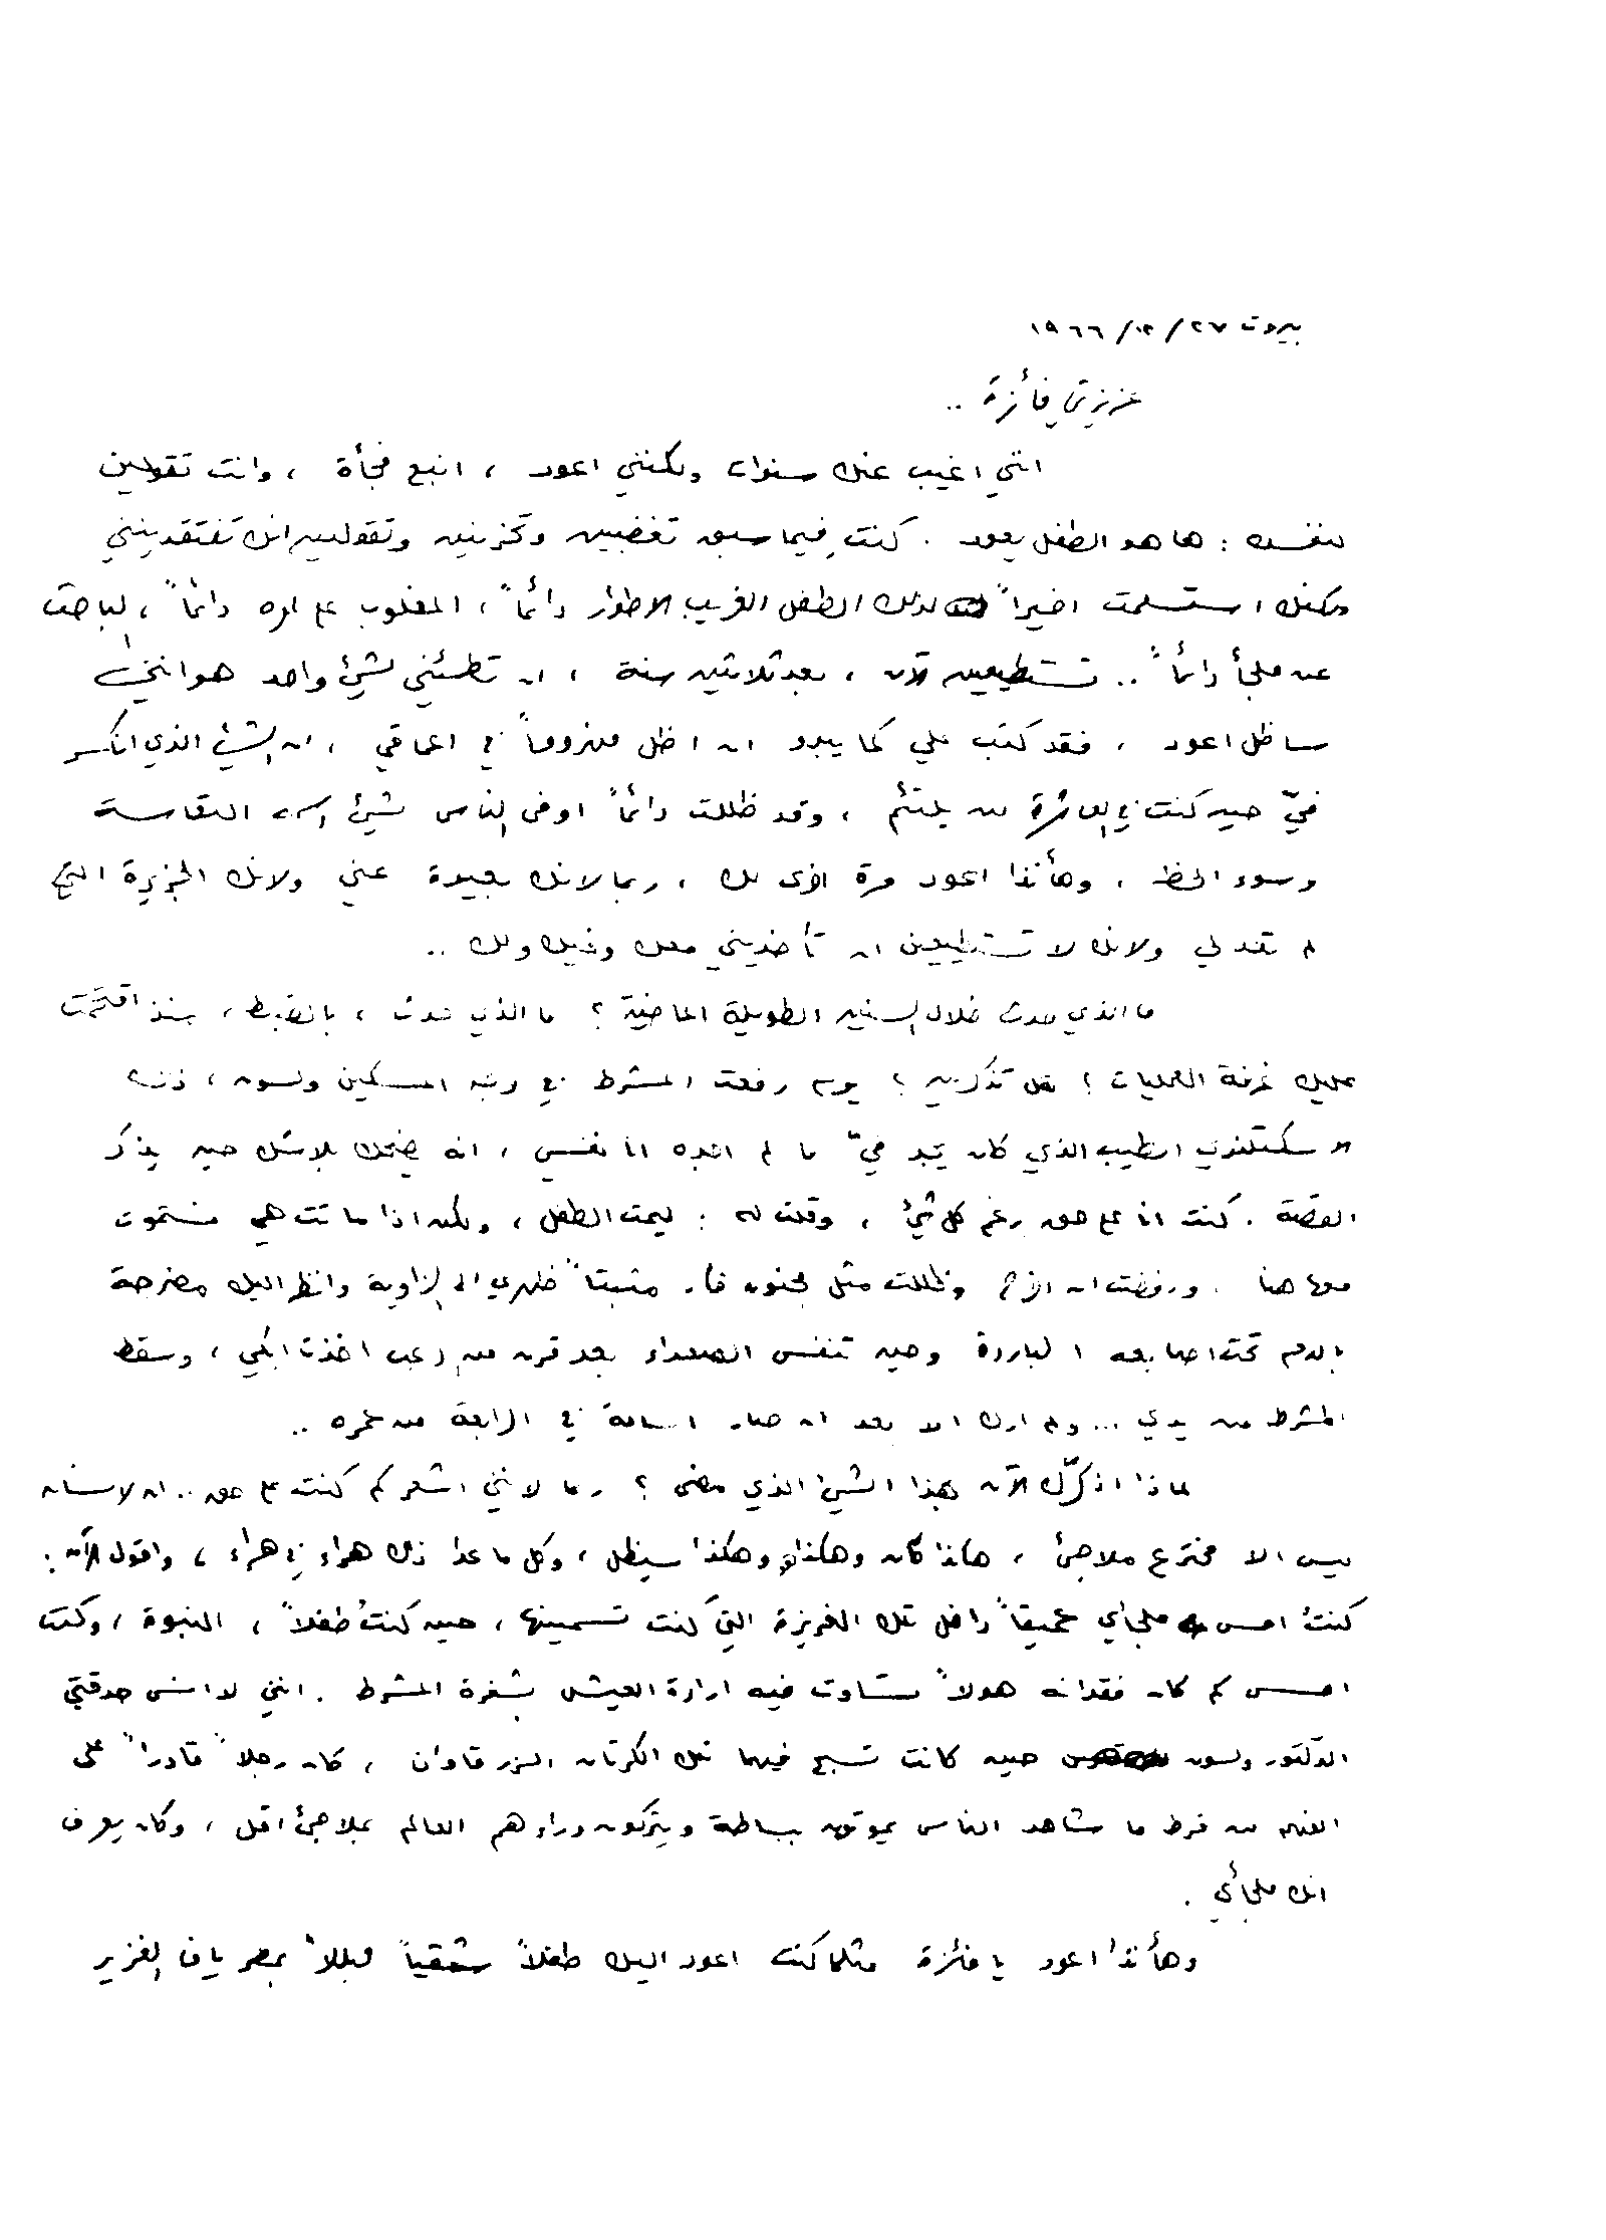 بيروت ٢٧/ ١٢/ ١٩٦٦
عزيزتي فائزة ..
انني اغيب عنك سنوات ولكنني اعود ، انبع فجأة ، وانت تقولين
لنفسك : ها هو الطفل يعود . كنتِ فيما سبق تغضبين وتحزنين وتقولين انك تفتقدينني
ولكنك استسلمت اخيراً لذلك الطفل الغريب الاطوار دائماً ، المغلوب على امره دائماً ، الباحث
عن ملجأ دائماً .. تستطيعين الآن ، بعد ثلاثين سنة ، ان تطمئني لشيئ واحد هو انني
ساظل اعود ، فقد كتب علي كما يبدو ان اظل مهزوماً في اعماقي ، ان الشيئ الذي انكسر
فيّ حين كنت في العاشرة لن يلتئم ، وقد ظللت دائماً اوفى الناس لشيئ اسمه التعاسة
وسوء الحظ . وهأنذا اعود مرة اخرى لك ، ربما لانك بعيدة عني ولانك الجزيرة التي
لم تعد لي ولانك لا تستطيعين ان تأخذيني معك وفيك ولك ..
ما الذي حدث خلال السنين الطويلة الماضية ؟ ما الذي حدث ، بالضبط ، منذ اقتحمت
عليك غرفة العمليات ؟ هل تذكرين ؟ يوم رفعت المشرط في وجه المسكين ولسون ، ذلك
الاسكتلندي الطيب الذي كان يجد فيّ ما لم اجده انا نفسي ، انه يضحك بلا شك حين يذكر
القصة . كنت انا على حق رغم كل شيئ ، وقلت له : ليمت الطفل ، ولكن اذا ماتت هي فستموت
معها هنا . ورفضت ان اخرج وظللت مثل مجنون فار مثبتاً ظهري الى الزاوية وانظر اليك مضرجة
بالدم تحت اصابعه الباردة وحين تنفس الصعداء بعد قرن من رعب اخذت ابكي ، وسقط
المشرط من يدي ... ولم ارك الا بعد ان صار اسامة في الرابعة من عمره ..
لماذا اذكّرك الآن بهذا الشيئ الذي مضى ؟ ربما لانني اشعر كم كنت على حق .. ان الانسان
ليس الا مخترع ملاجئ ، هكذا كان وهكذا وهكذا سيظل ، وكل ما عدا ذلك هراء في هراء ، واقول الآن :
كنتُ احس ملجأي عميقاً داخل تلك الغريزة التي كنت تسمينها ، حين كنتُ طفلاً ، النبوة ، وكنت
احس كم كان فقدانه هولاً تساوت فيه ارادة العيش بشفرة المشرط . انني لا انسى حدقتي
الدكتور ولسون حين كانت تسبح فيهما تلك الكرتان الزرقاوان ، كان رجلاً قادراً على
الفهم من فرط ما شاهد الناس يموتون ببساطة ويتركون وراءهم العالم بملاجئ اقل ، وكان يعرف
انك ملجأي .
وهأنذا اعود يا فائزة مثلما كنت اعود اليك طفلاً شقياً مبللاً بمطر يافا الغزير